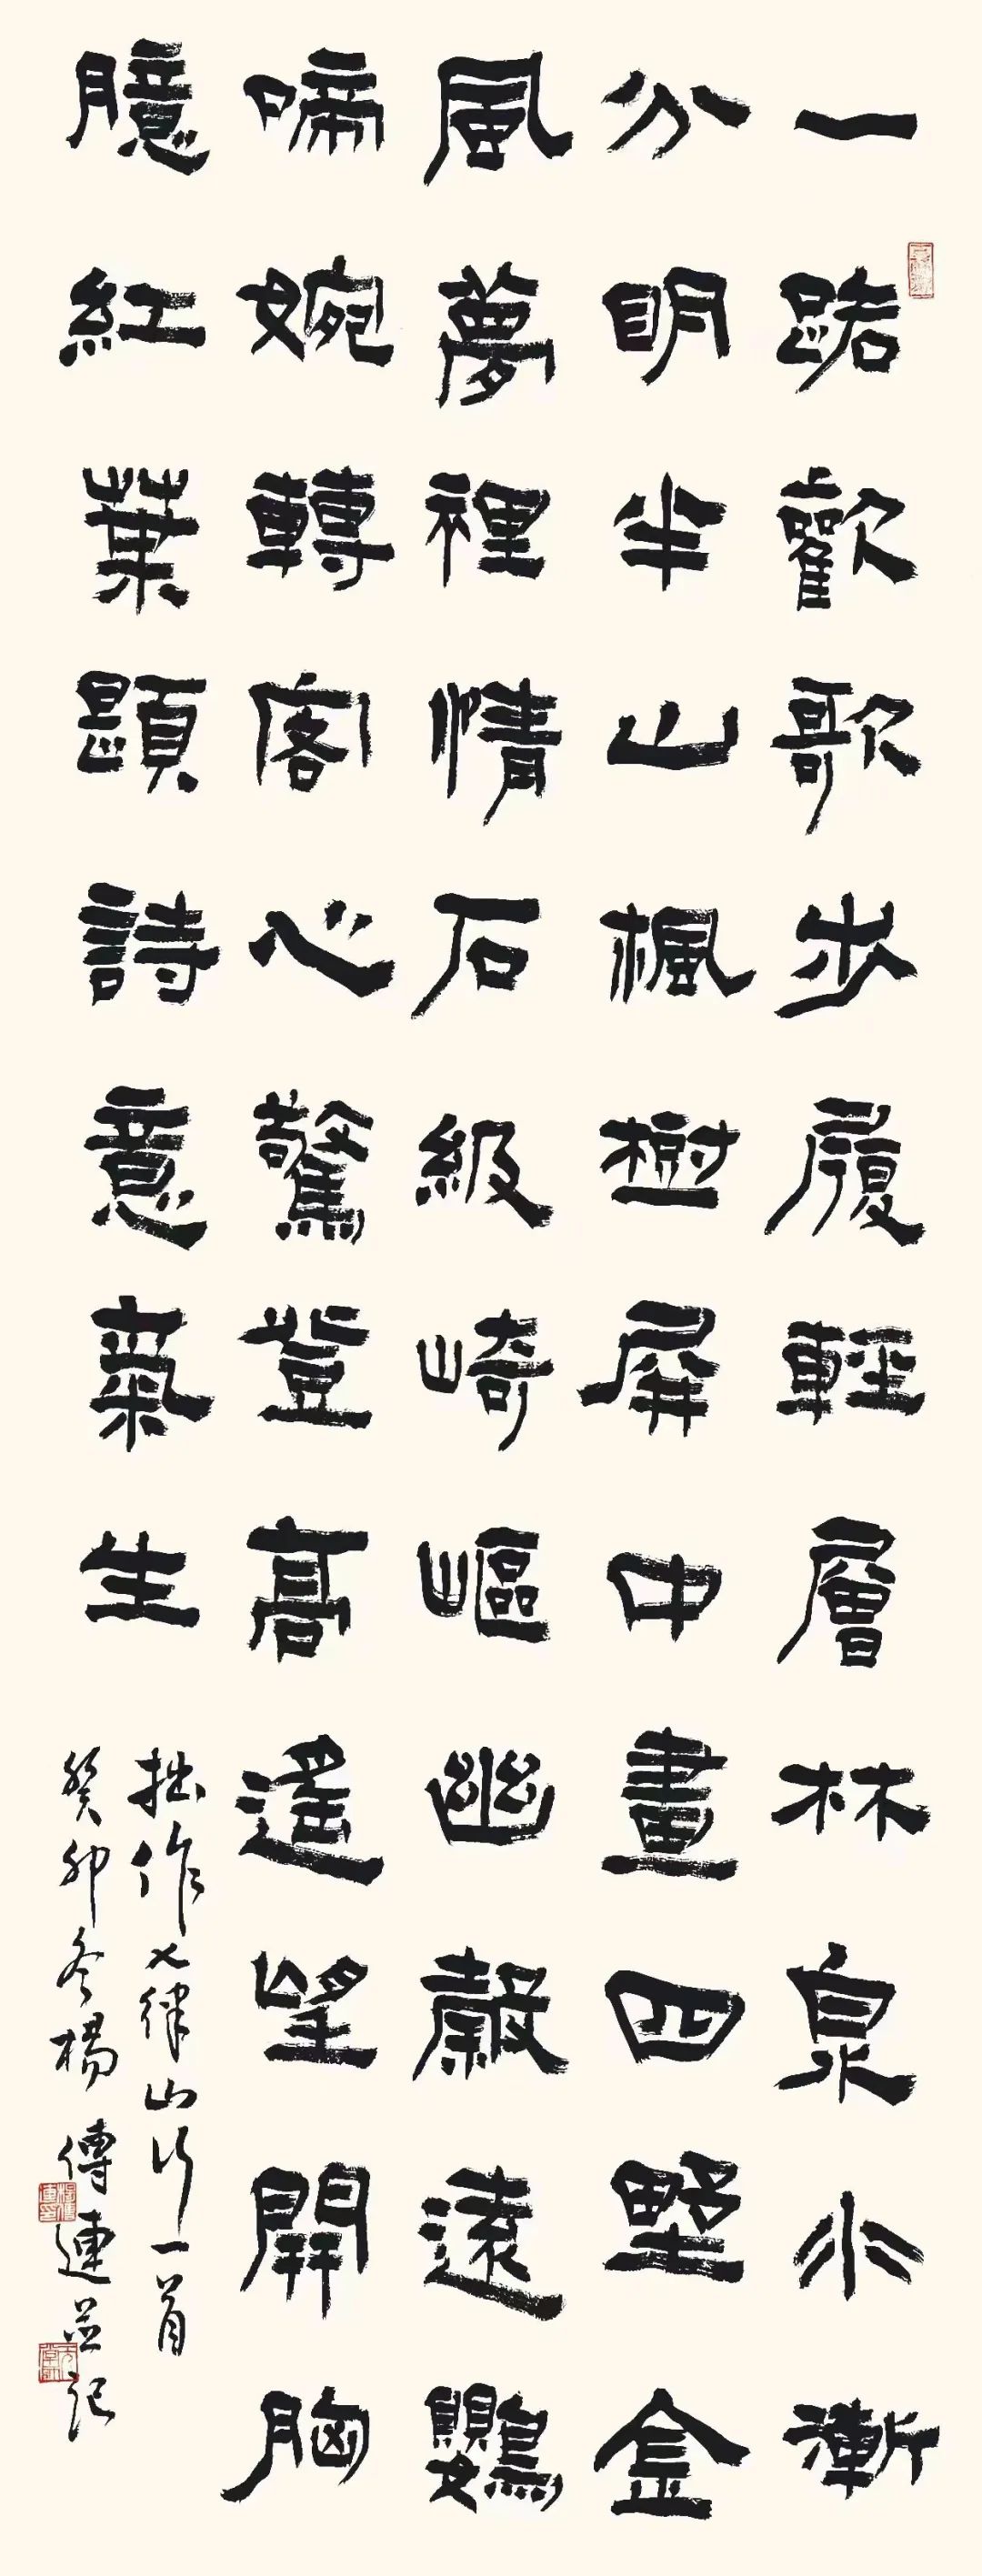 一路歡歌步履輕層林泉水漸
分明半山楓樹屏中畫四野金
風夢裡情石級崎嶇幽蔽遠鸚
啼婉轉客心驚登高遙望開胸
臆紅葉題詩意氣生
拙作七律山行一首
癸卯冬楊傳連並記